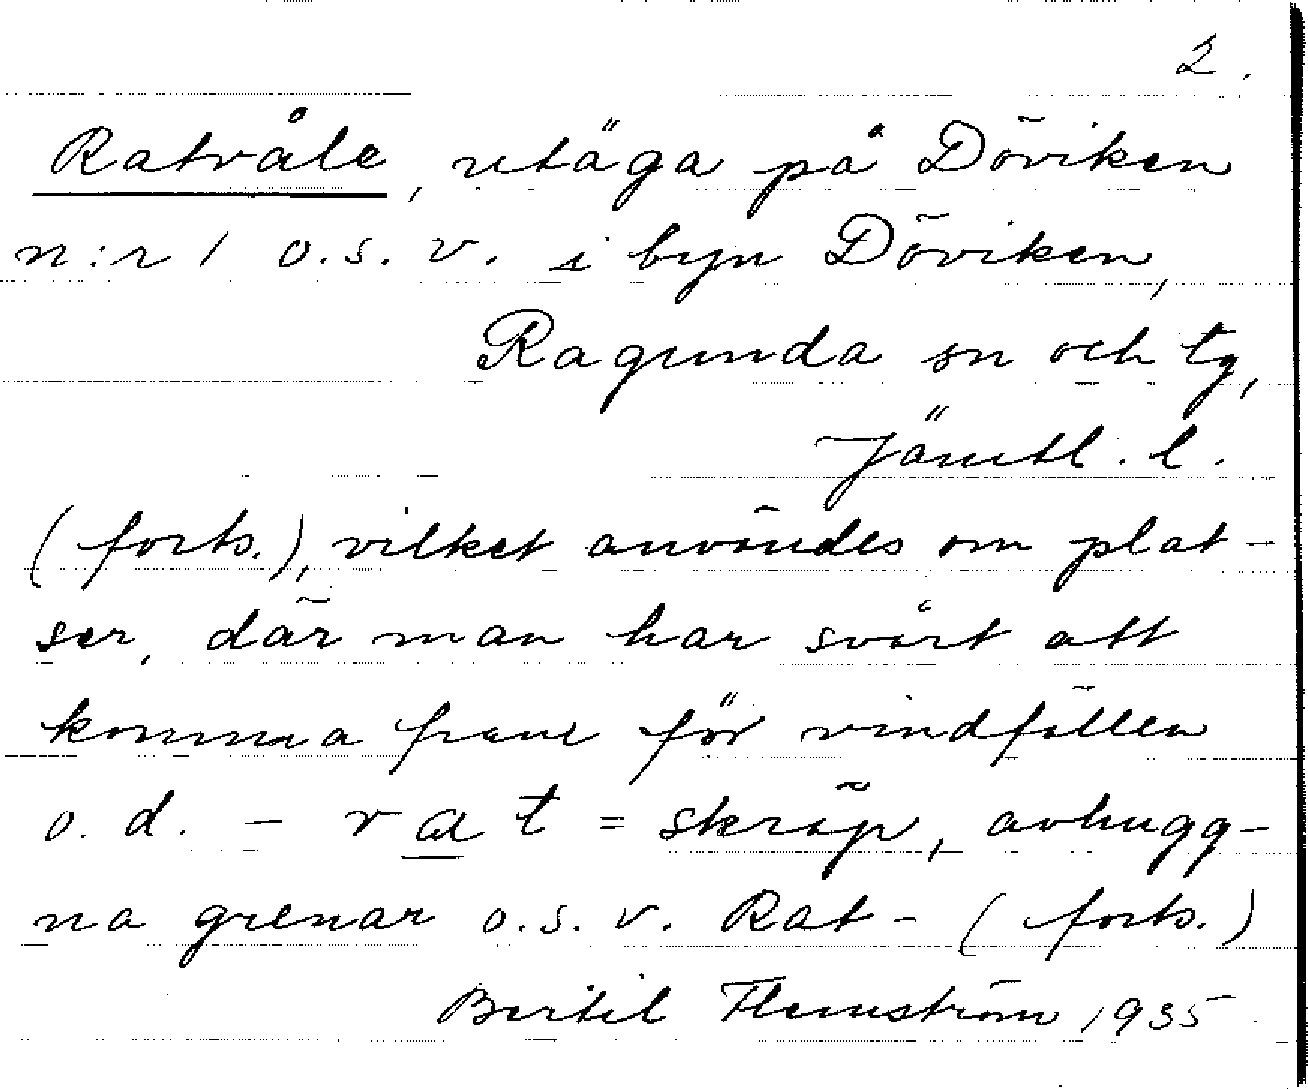 2.
Ratvåle, utäga på Döviken
n:r 1 o.s.v. i byn Döviken,
Ragunda sn och tg,
Jämtl. l.
(forts.), vilket användes om plat-
ser, där man har svårt att
komma fram för vindfällen
o. d. - rat = skräp, avhugg-
na grenar o.s.v. Rat- (forts.)
Bertil Flemström 1935